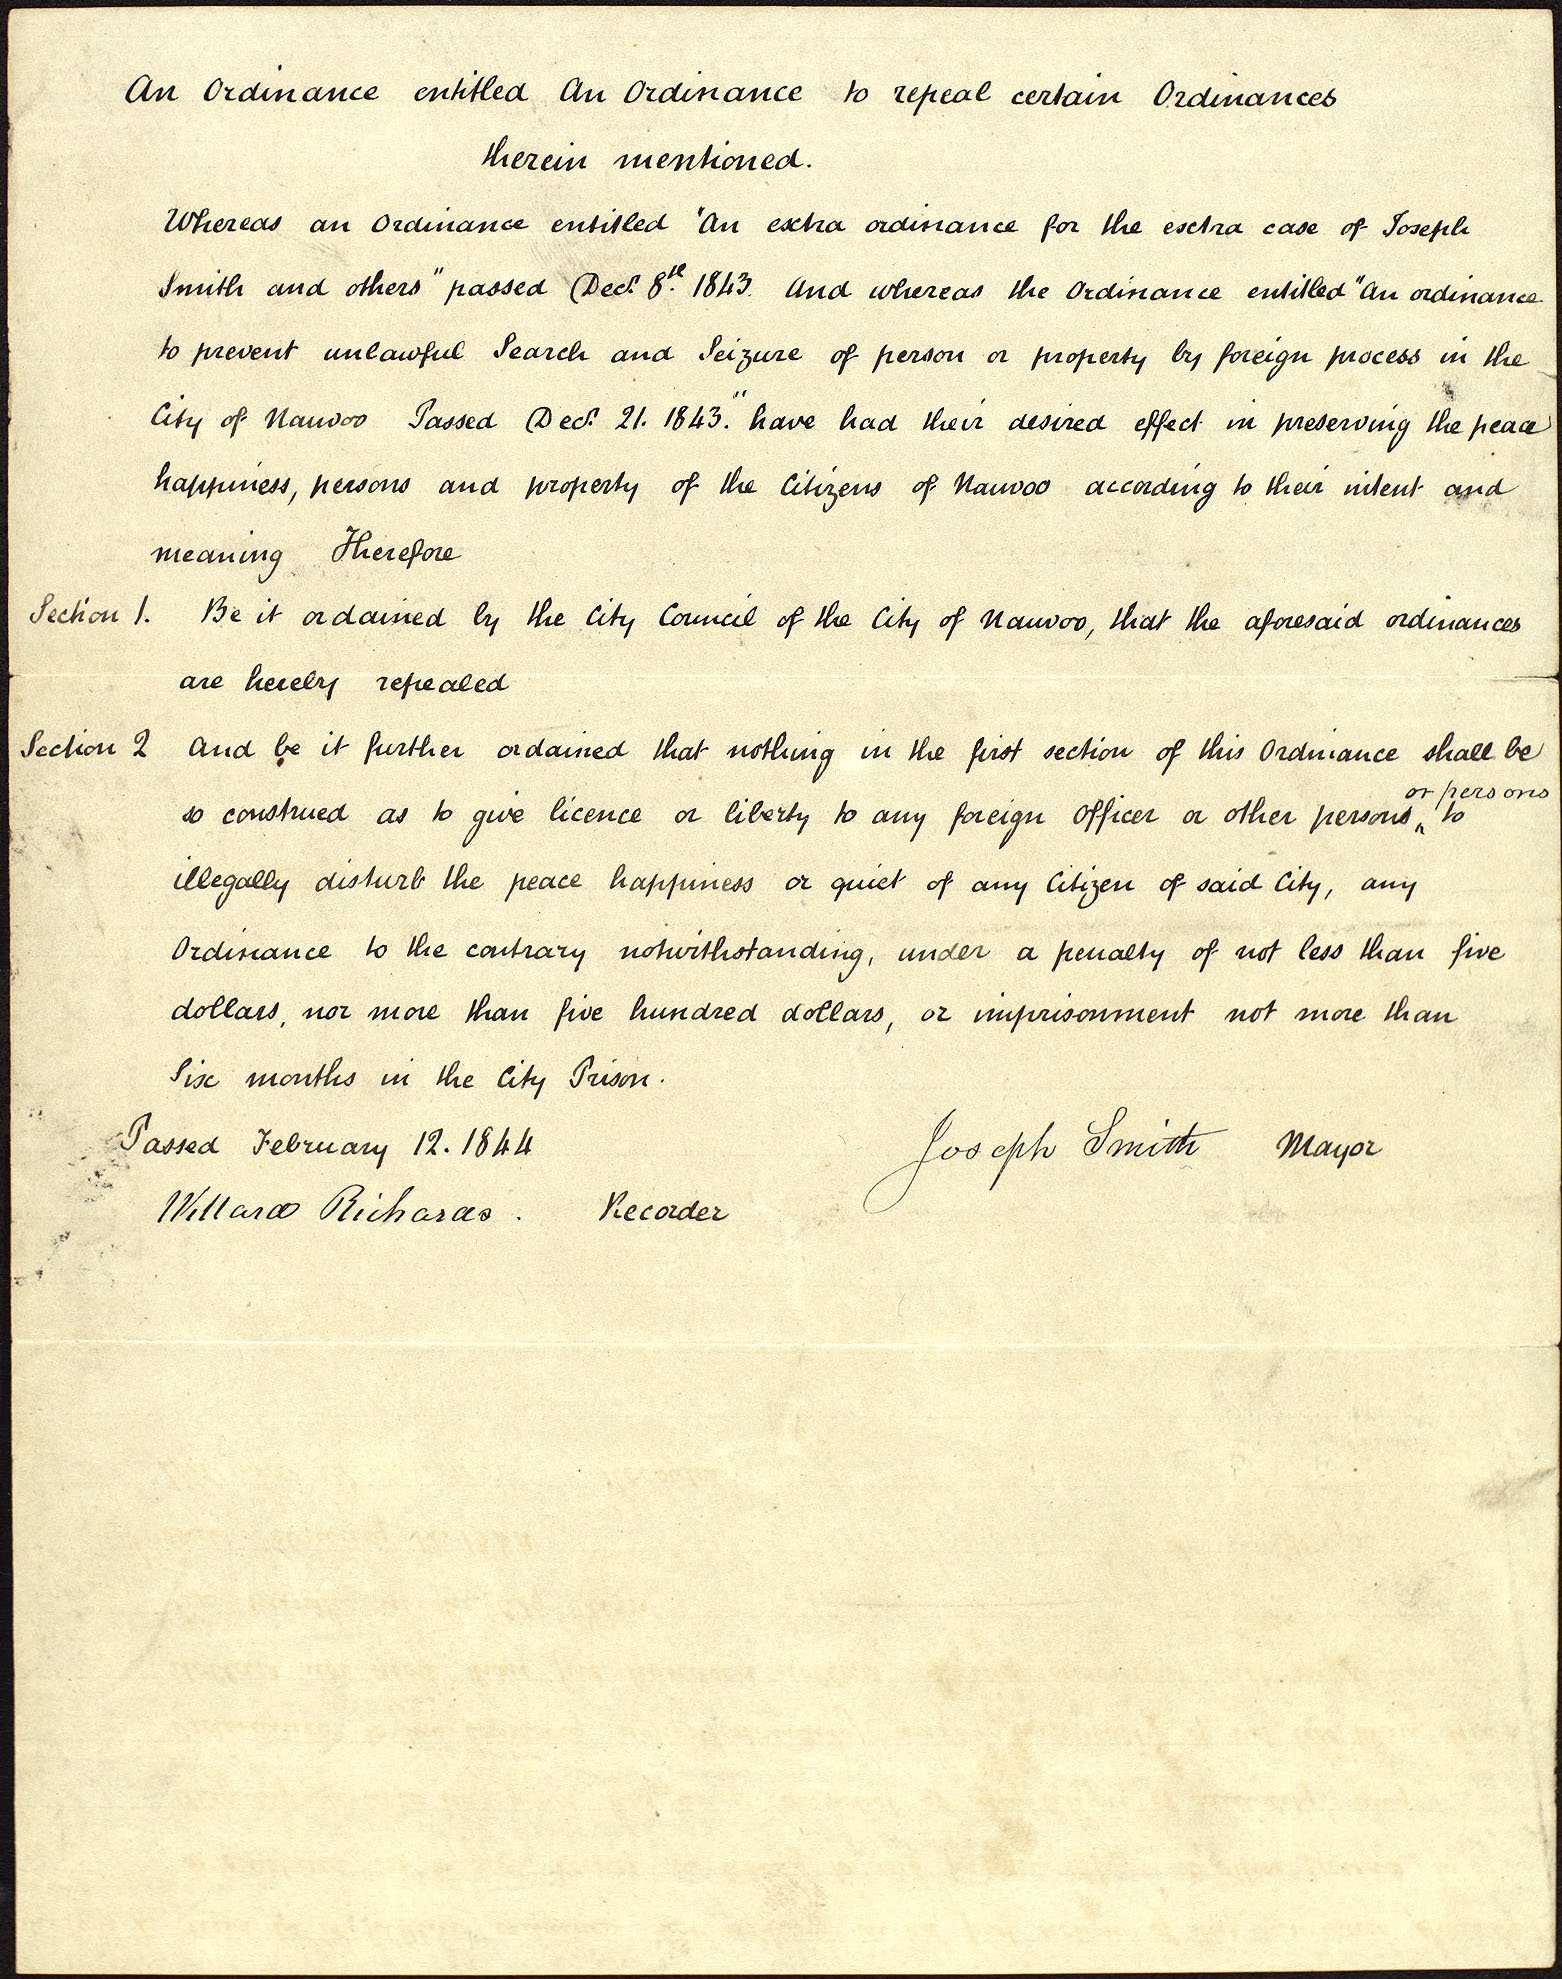 An Ordinance entitled An Ordinance to repeal certain Ordinances
therein mentioned.
Whereas an Ordinance entitled "An extra ordinance for the extra case of Joseph
Smith and others" passed Decr. 8th. 1843. And whereas the Ordinance entitled "An ordinance
to prevent unlawful Search and Seizure of person or property by foreign process in the
City of Nauvoo Passed Decr. 21. 1843." have had their desired effect in preserving the peace
happiness, persons and property of the Citizens of Nauvoo according to their intent and
meaning Therefore
Section 1. Be it ordained by the City Council of the City of Nauvoo, that the aforesaid ordinances
are hereby repealed
Section 2 And be it further ordained that nothing in the first section of this Ordinance shall be
or persons
so construed as to give licence or liberty to any foreign Officer or other persons to
illegally disturb the peace happiness or quiet of any Citizen of said City, any
Ordinance to the contrary notwithstanding, under a penalty of not less than five
dollars, nor more than five hundred dollars, or imprisonment not more than
Six months in the City Prison.
Passed February 12. 1844
Joseph Smith Mayor
Willard Richards. Recorder